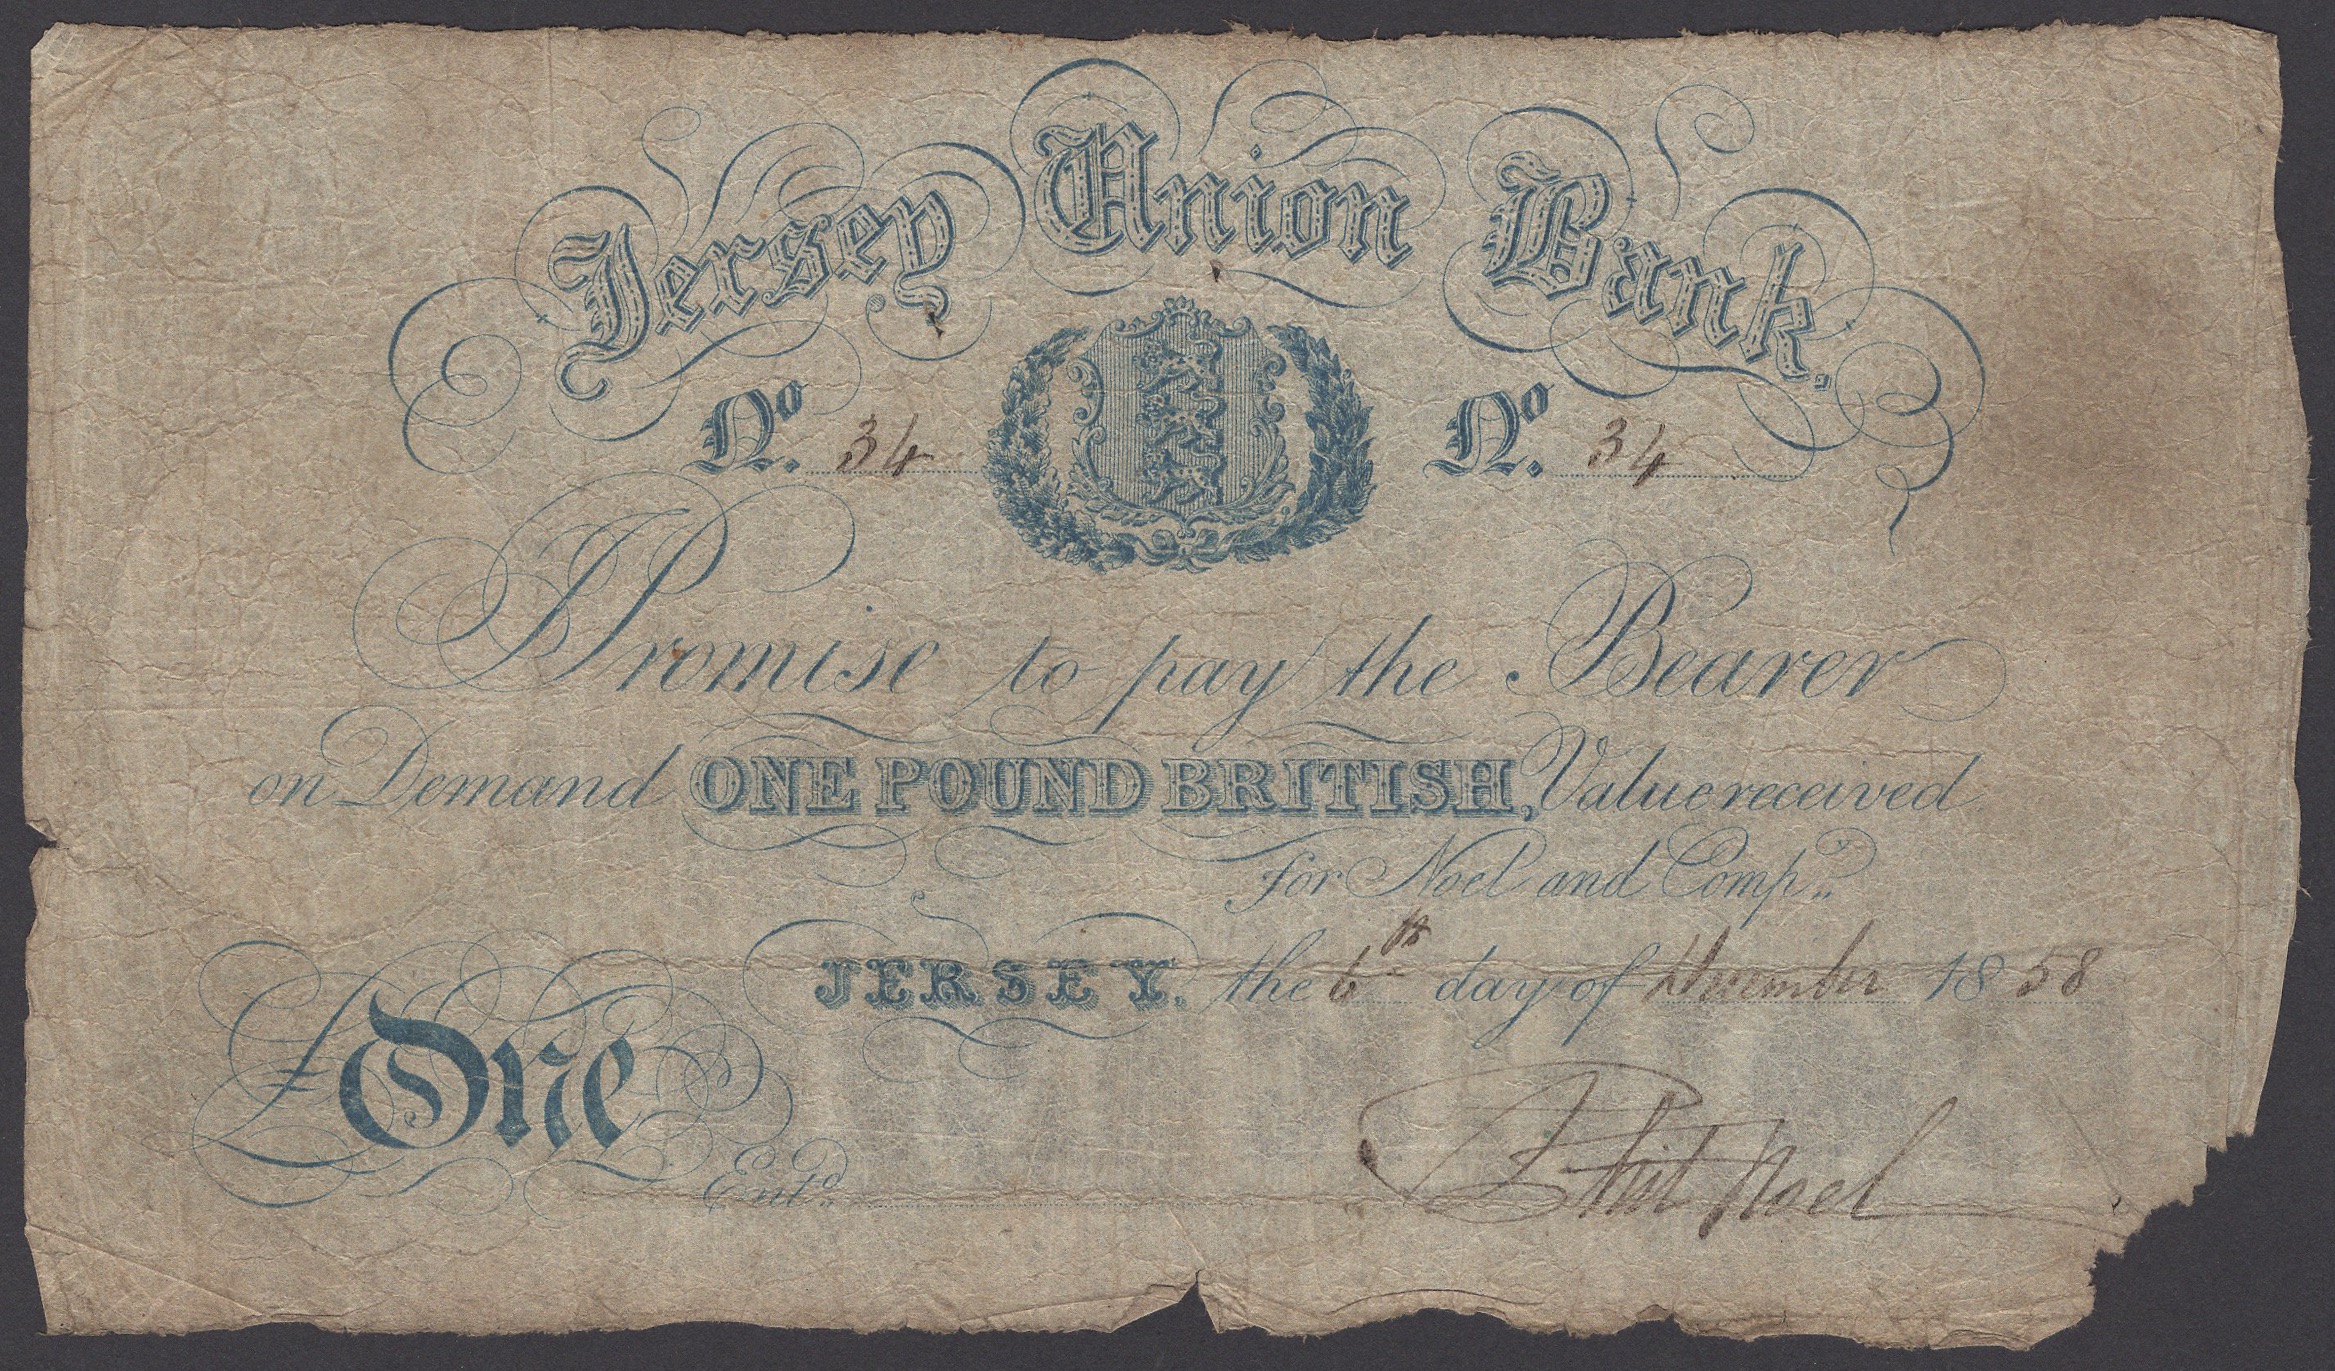 Jersey Union Bank.
No. 34 No. 34
I Promise to pay the Bearer
on Demand ONE POUND BRITISH, Value received.
for Noel and Compy.
JERSEY. the 6th day of December 1858
£ One
Entd. Phit Noel